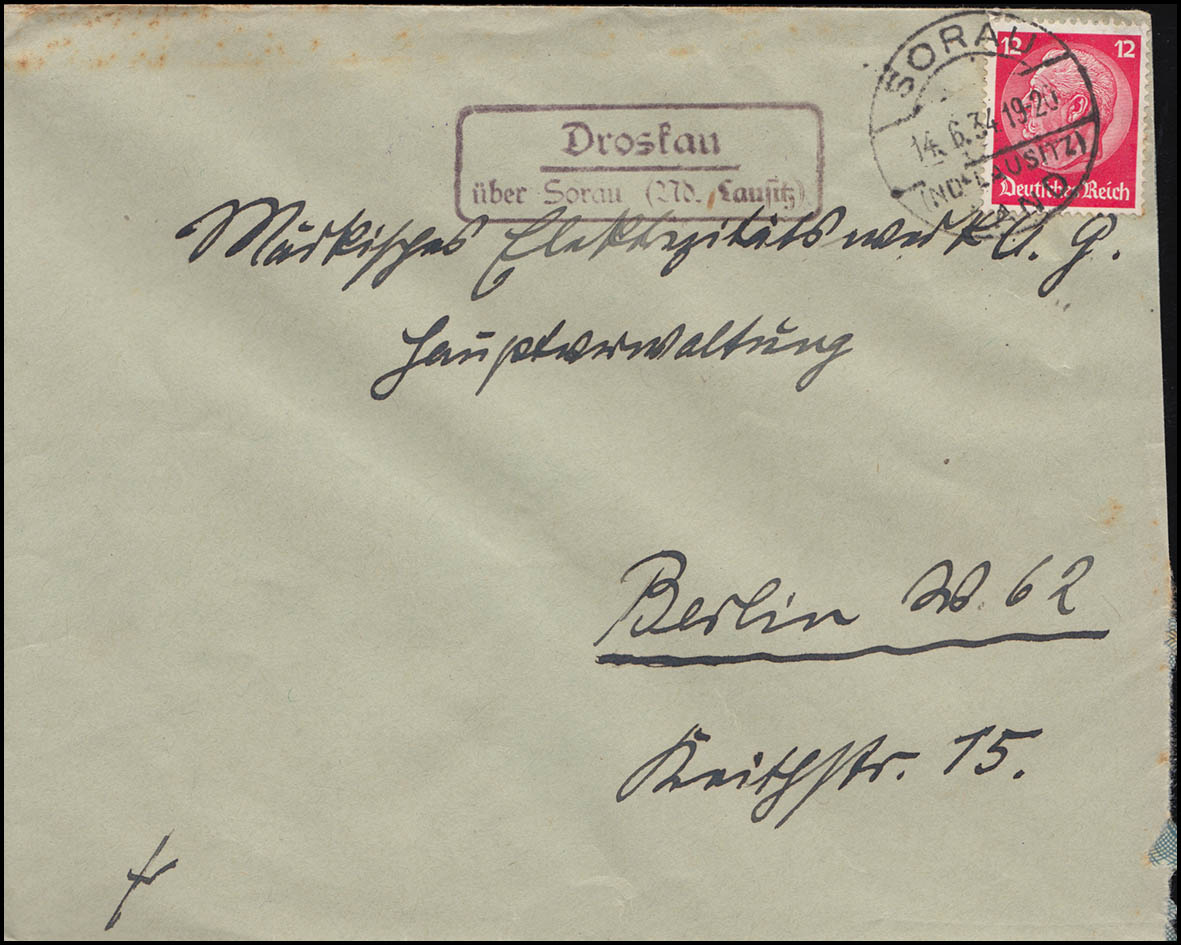 SORAU
14.6.34 19-20
(NDR-LAUSITZ)
LAND
12 12
Deutsches Reich
Droskau
über Sorau (Nd. Lausitz)
Märkisches Elektrizitätswerk A. G.
Hauptverwaltung
Berlin W. 62
Keithstr. 15.